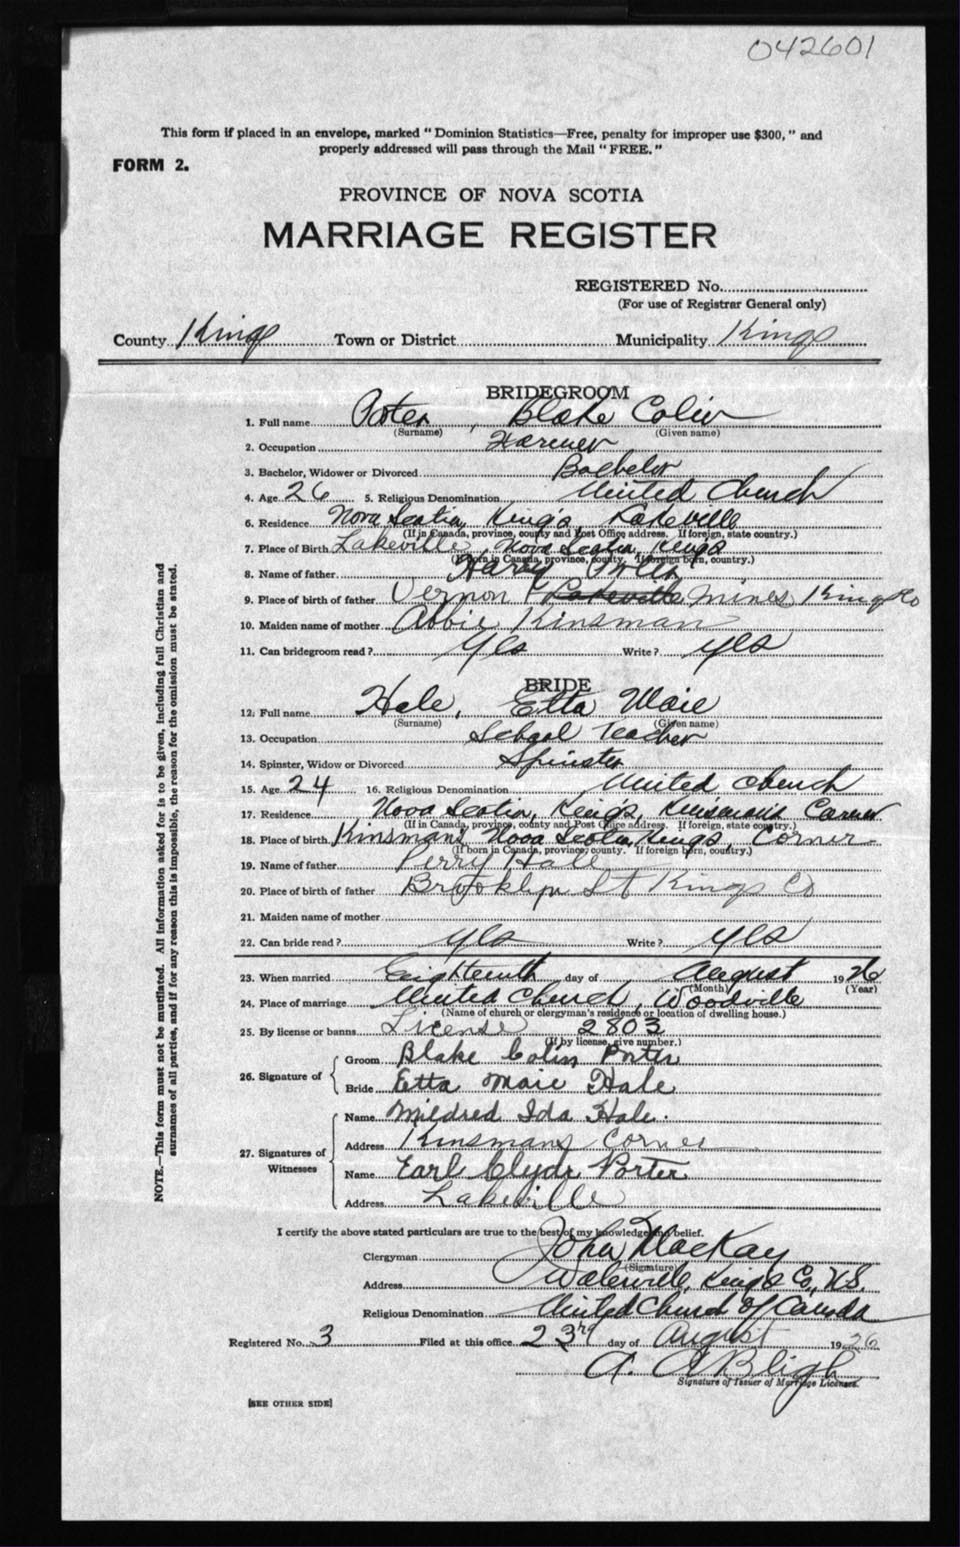 042601
This form if placed in an envelope, marked "Dominion Statistics—Free, penalty for improper use $300," and
properly addressed will pass through the Mail "FREE."
FORM 2.
PROVINCE OF NOVA SCOTIA
MARRIAGE REGISTER
REGISTERED No.
(For use of Registrar General only)
County Kings Town or District Municipality Kings
BRIDEGROOM
1. Full name Porter, Blake Colin
(Surname) (Given name)
2. Occupation Farmer
3. Bachelor, Widower or Divorced Bachelor
4. Age 26 5. Religious Denomination United Church
6. Residence Nova Scotia, King's, Lakeville
(If in Canada, province, county and Post Office address. If foreign, state country.)
7. Place of Birth Lakeville, Nova Scotia, Kings
(If born in Canada, province, county. If foreign born, country.)
8. Name of father Harvy Porter
9. Place of birth of father Vernon Lakeville Mines Kings Co
10. Maiden name of mother Abbie Kinsman
11. Can bridegroom read? Yes Write? yes
BRIDE
12. Full name Hale, Etta Maie
(Surname) (Given name)
13. Occupation School Teacher
14. Spinster, Widow or Divorced Spinster
15. Age 24 16. Religious Denomination United Church
17. Residence Nova Scotia, King's, Kinsmans Corner
(If in Canada, province, county and Post Office address. If foreign, state country.)
18. Place of birth Kinsmans Nova Scotia, Kings, Corner
(If born in Canada, province, county. If foreign born, country.)
19. Name of father Perry Hale
20. Place of birth of father Brooklyn St Kings Co
21. Maiden name of mother
22. Can bride read? yes Write? yes
23. When married Eighteenth day of August 1926
(Month) (Year)
24. Place of marriage United Church, Woodville
(Name of church or clergyman's residence or location of dwelling house.)
25. By license or banns License 2803
(If by license, give number.)
26. Signature of
Groom Blake Colin Porter
Bride Etta Maie Hale
27. Signatures of Witnesses
Name Mildred Ida Hale.
Address Kinsmans Corner
Name Earl Clyde Porter
Address Lakeville
I certify the above stated particulars are true to the best of my knowledge and belief.
Clergyman John MacKay
(Signature)
Address Waterville, Kings Co., N.S.
Religious Denomination United Church of Canada
Registered No. 3 Filed at this office 23rd day of August 1926
A. A Bligh
Signature of Issuer of Marriage Licenses.
[SEE OTHER SIDE]
NOTE.—This form must not be mutilated. All information asked for is to be given, including full Christian and
surnames of all parties, and if for any reason this is impossible, the reason for the omission must be stated.